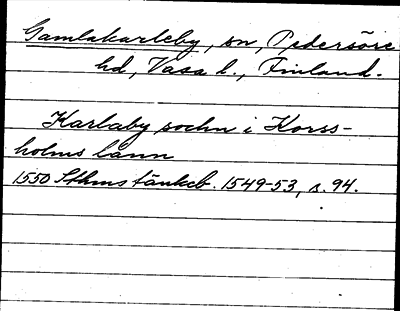 Gamlakarleby, sn, Pedersöre
hd, Vasa l., Finland.
Karlaby sochn i Korss-
holms länn
1550 Sthms tänkeb. 1549-53, s. 94.